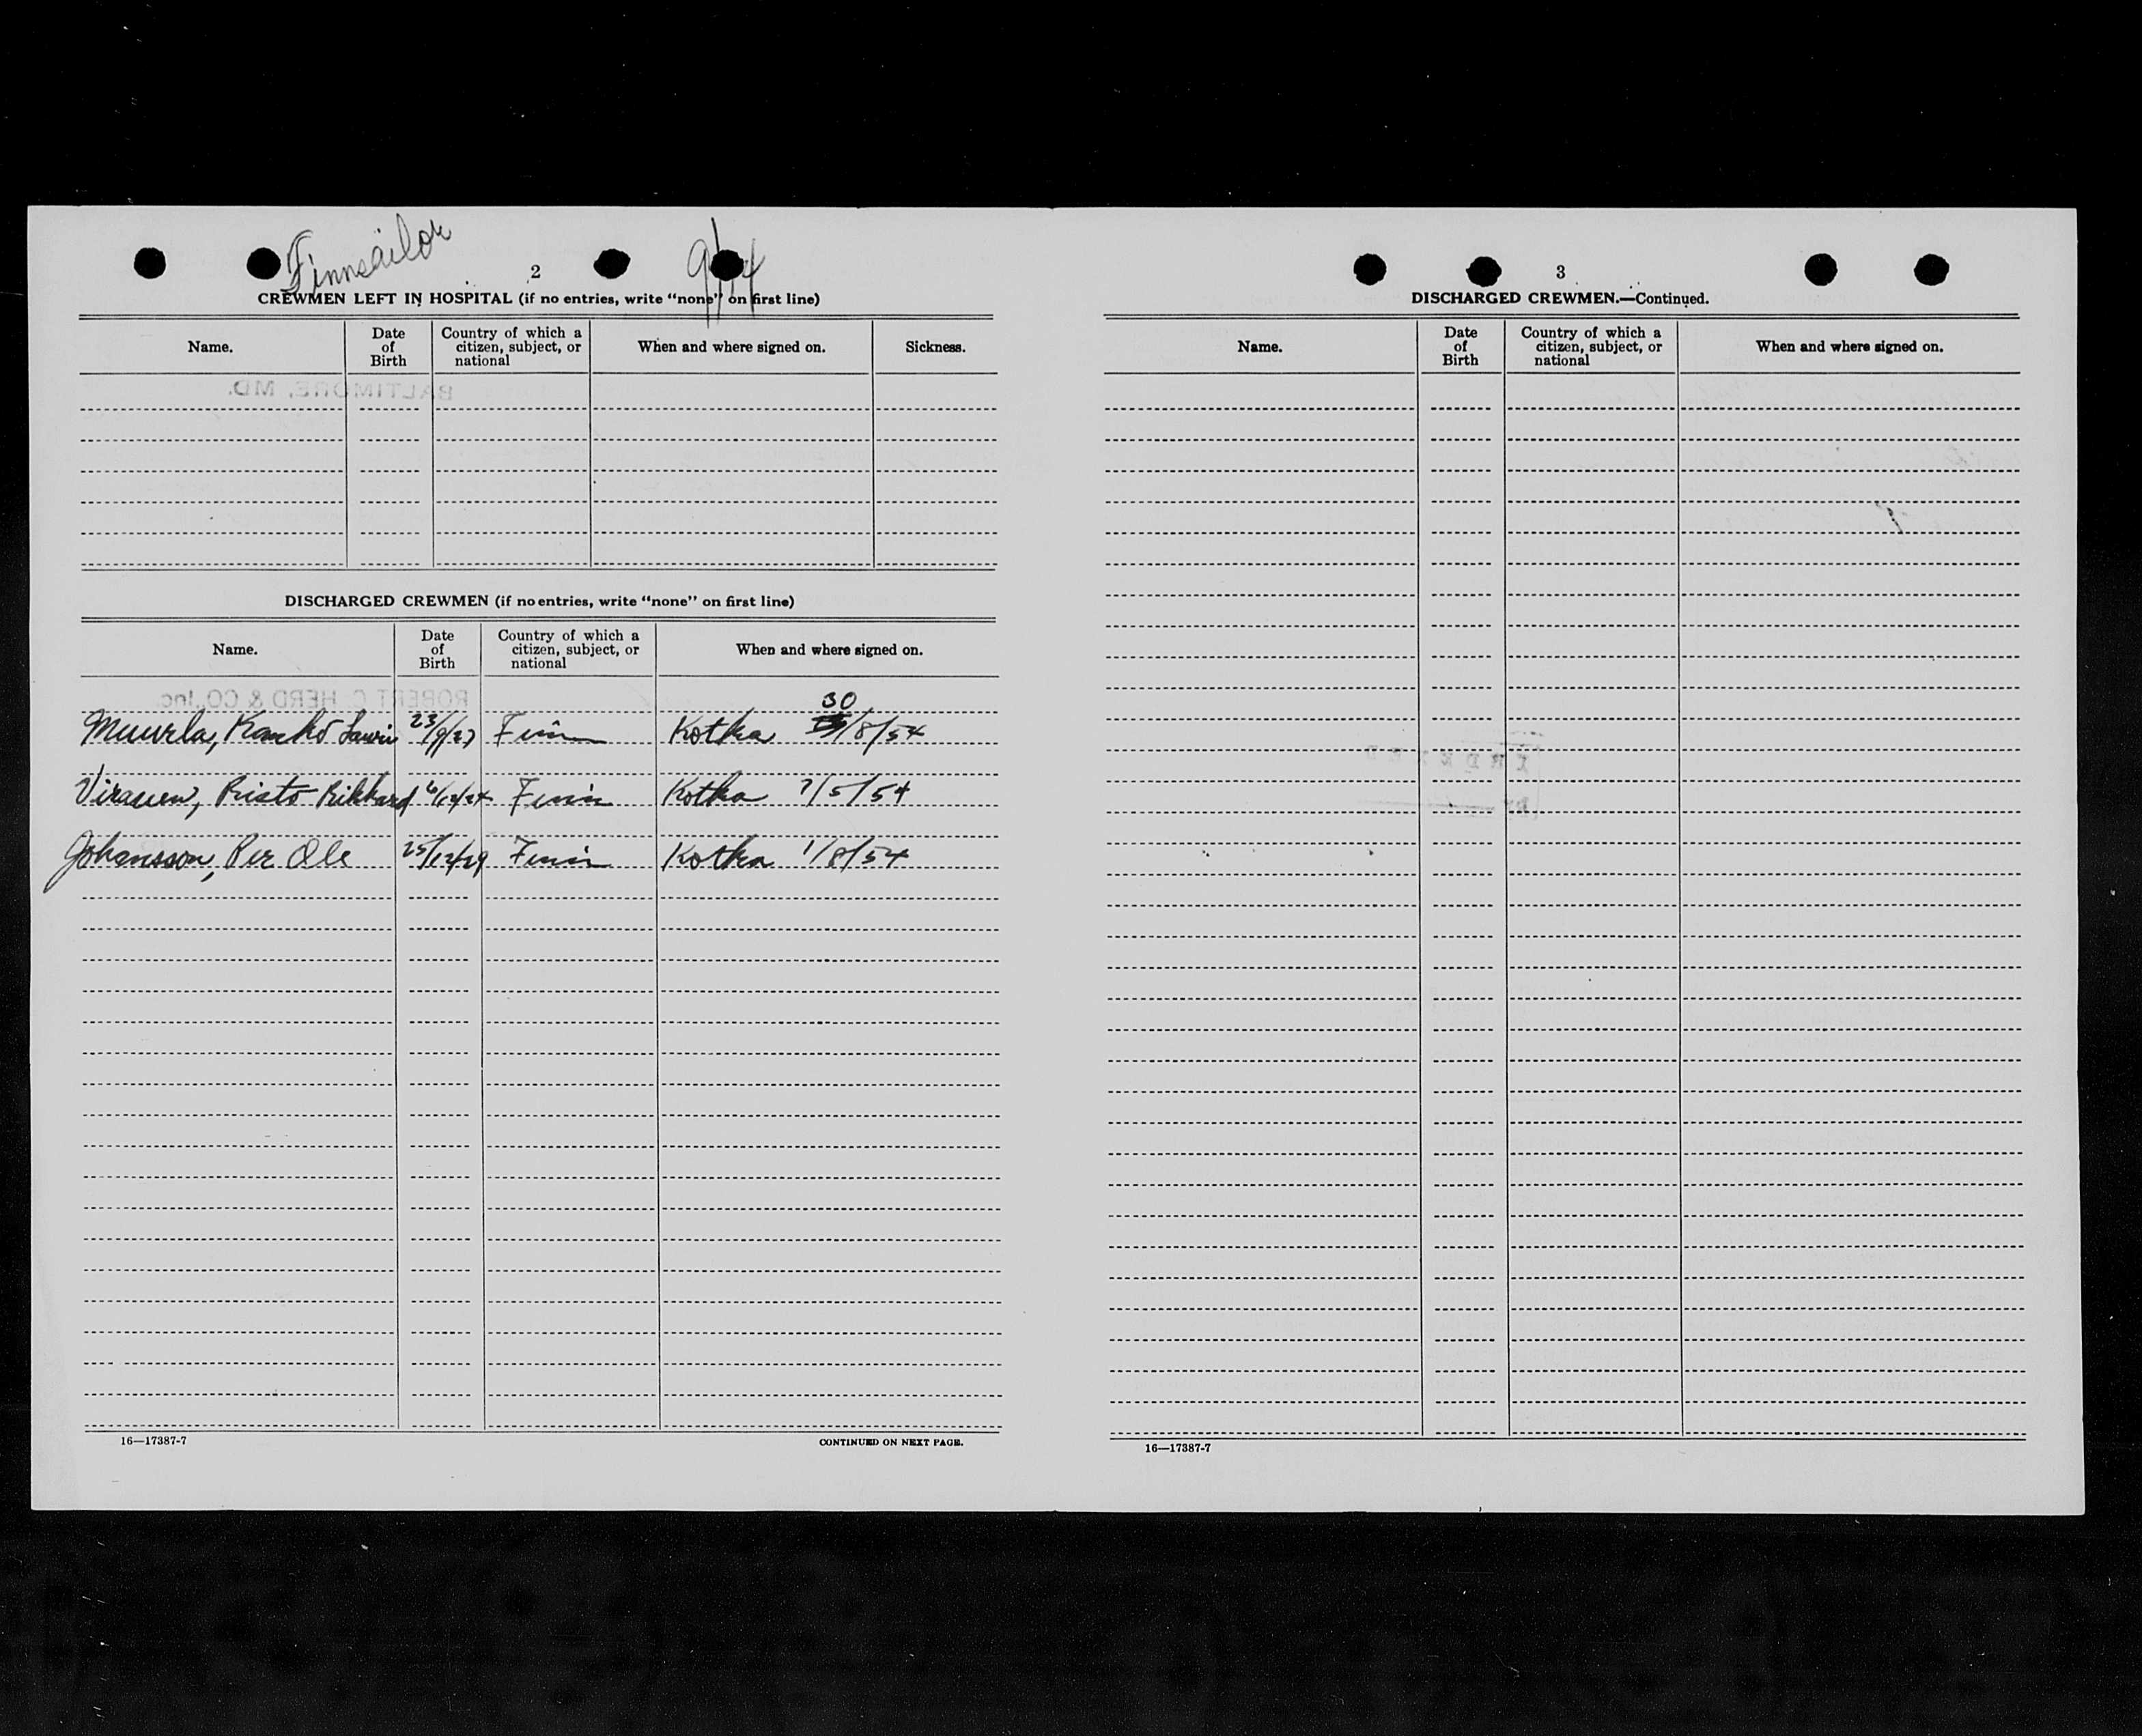 Finnsailor
2
CREWMEN LEFT IN HOSPITAL (if no entries, write "none" on first line)
Name. Date of Birth Country of which a citizen, subject, or national When and where signed on. Sickness.
BALTIMORE, MD.
DISCHARGED CREWMEN (if no entries, write "none" on first line)
Name. Date of Birth Country of which a citizen, subject, or national When and where signed on.
ROBERT C HERD & CO, Inc.
30
Lauri 23/9/27 Finn Kotka /8/54
Risto Rikhard Kotka 7/5/54
Johansson, Per Ole 25/12/29 Kotka 1/8/54
16—17387-7 CONTINUED ON NEXT PAGE.
3
DISCHARGED CREWMEN.—Continued.
Name. Date of Birth Country of which a citizen, subject, or national When and where signed on.
INDEXED
by
16—17387-7